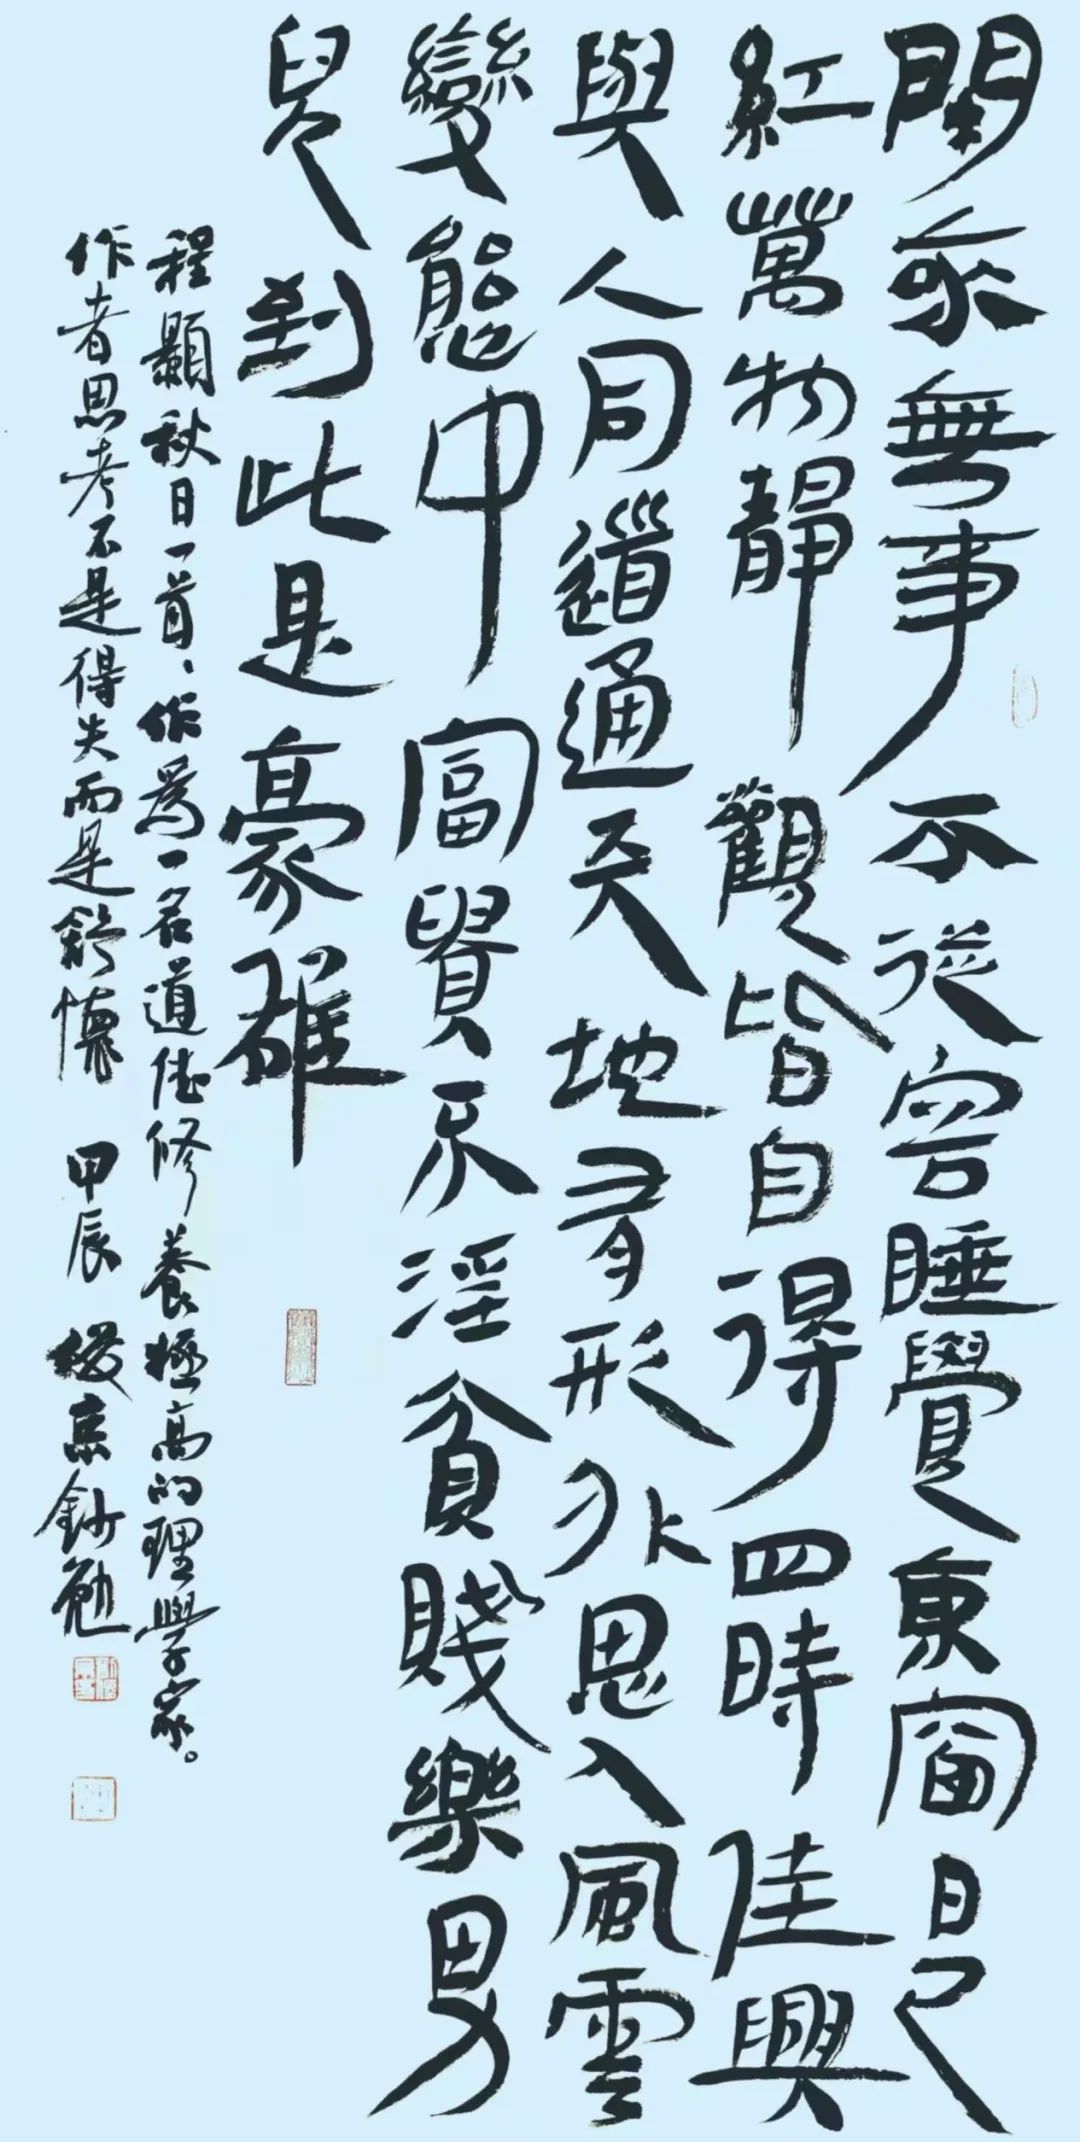 閑來無事不從容睡覺東窗日已
紅萬物靜觀皆自得四時佳興
與人同道通天地有形外思入風雲
變態中富貴不淫貧賤樂男
兒到此是豪雄
程顥秋日一首、作爲一名道德修養極高的理學家。
作者思考不是得失而是舒懷 甲辰